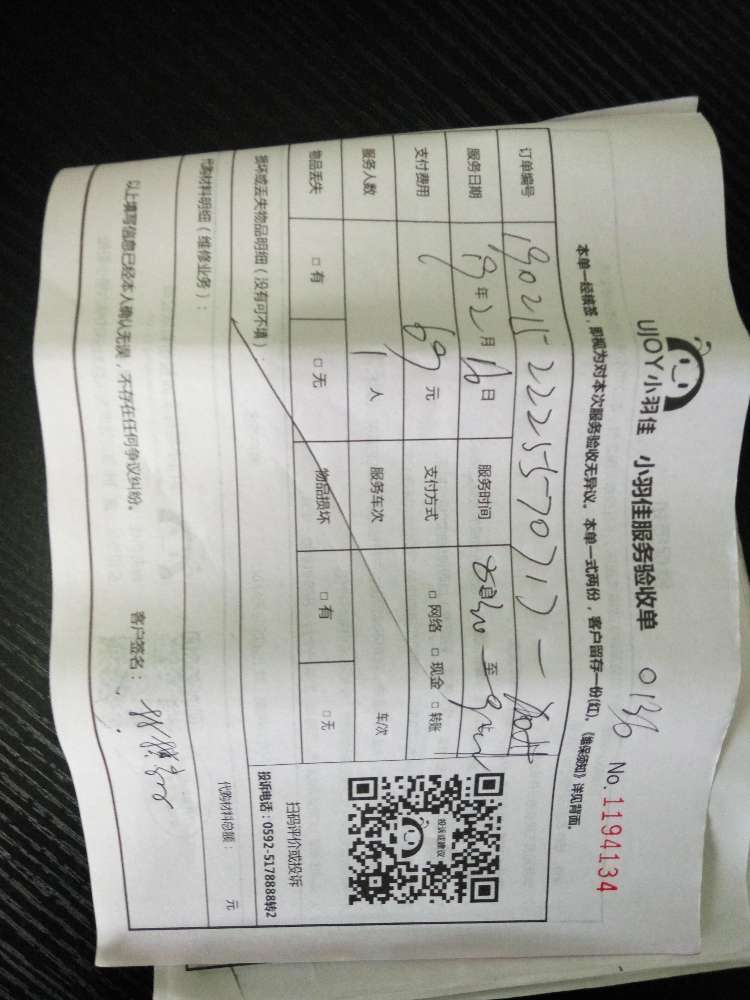 UJOY小羽佳 小羽佳服务验收单 0136 No.1194134
本单一经核签，即视为对本次服务验收无异议。本单一式两份，客户留存一份(红)。《维保须知》详见背面。
订单编号 190215222557071
服务日期 19年2月16日 服务时间 至
支付费用 69元 支付方式 □网络 □现金 □转账
服务人数 1人 服务车次 车/次
物品丢失 □有 □无 物品损坏 □有 □无
投诉或建议
扫码评价或投诉
投诉电话：0592-5178888转2
损坏或丢失物品明细（没有可不填）：
代购材料明细（维修业务）： 代购材料总额： 元
以上填写信息已经本人确认无误，不存在任何争议纠纷。 客户签名：